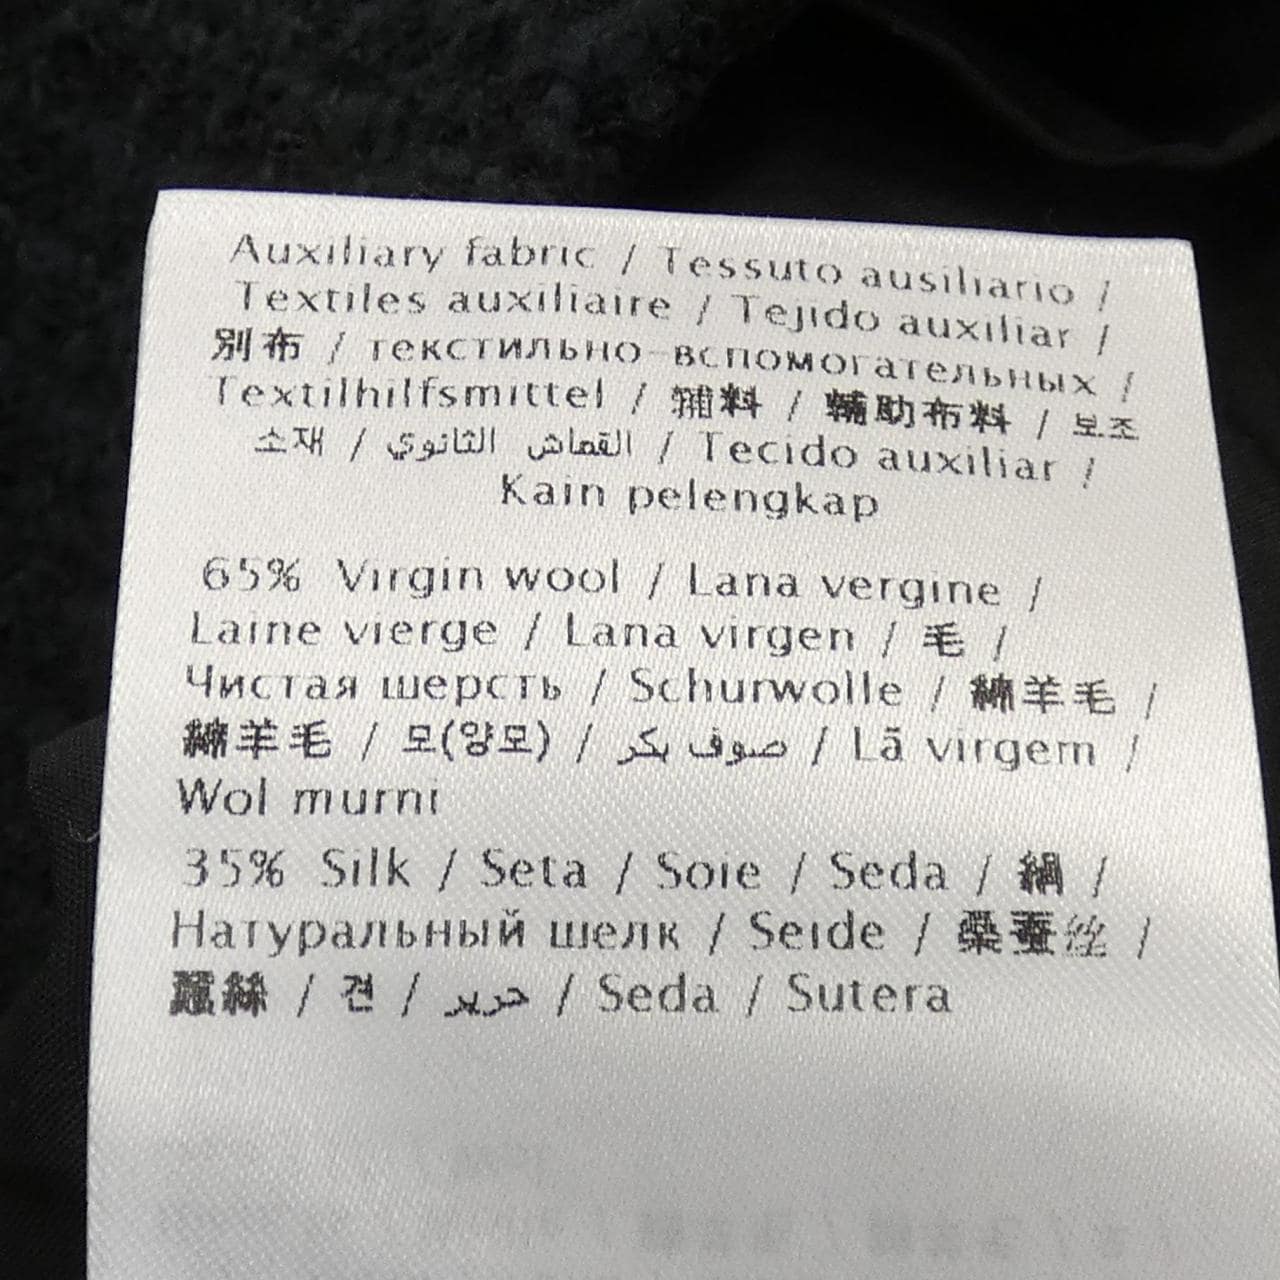 Auxiliary fabric / Tessuto ausiliario /
Textiles auxiliaire / Tejido auxiliar /
別布 / текстильно-вспомогательных /
Textilhilfsmittel / 辅料 / 輔助布料 / 보조
소재 / القماش الثانوي / Tecido auxiliar /
Kain pelengkap
65% Virgin wool / Lana vergine /
Laine vierge / Lana virgen / 毛 /
Чистая шерсть / Schurwolle / 綿羊毛 /
綿羊毛 / 모(양모) / صوف بكر / Lã virgem /
Wol murni
35% Silk / Seta / Soie / Seda / 絹 /
Натуральный шелк / Seide / 桑蚕丝 /
蠶絲 / 견 / حرير / Seda / Sutera